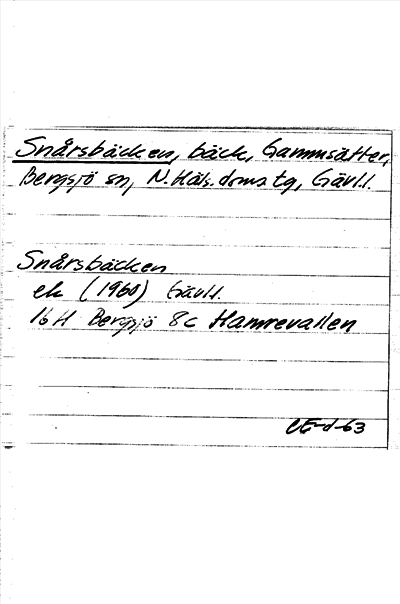 Snårsbäcken, bäck, Gammsätter,
Bergsjö sn, N. Häls. doms. tg, Gävl.l.
Snårsbäcken
ek (1960) Gävl.l.
16H Bergsjö 8c Hamrevallen
CE-d-63